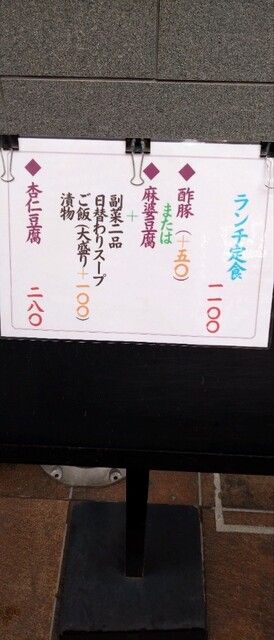 ランチ定食
一一〇〇
◆酢豚（+五〇）
または
◆麻婆豆腐
+
副菜二品
日替わりスープ
ご飯（大盛り+一〇〇）
漬物
◆杏仁豆腐
二八〇